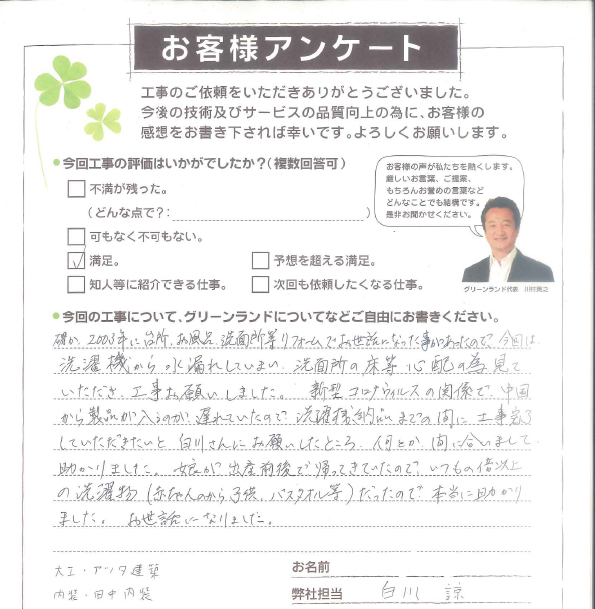 お客様アンケート
工事のご依頼をいただきありがとうございました。
今後の技術及びサービスの品質向上の為に、お客様の
感想をお書き下されば幸いです。よろしくお願いします。
今回工事の評価はいかがでしたか?(複数回答可)
不満が残った。
(どんな点で?: )
可もなく不可もない。
満足。
予想を超える満足。
知人等に紹介できる仕事。
次回も依頼したくなる仕事。
お客様の声が私たちを熱くします。
厳しいお言葉、ご提案、
もちろんお誉めの言葉など
どんなことでも結構です。
是非お聞かせください。
グリーンランド代表
今回の工事について、グリーンランドについてなどご自由にお書きください。
確か、2003年に台所、お風呂、洗面所等リフォームでお世話になった事があったので、今回は
洗濯機から水漏れしていまい、洗面所の床等心配の為見て
いただき、工事お願いしました。 新型コロナウィルスの関係で、中国
から製品が入るのが遅れていたので、洗濯機納品までの間に工事完了
していただきたいと白川さんにお願いしたところ、何とか間に合いまして
助かりました。娘が出産前後で帰ってきていたので、いつもの倍以上
の洗濯物(赤ちゃんのから子供、バスタオル等)だったので本当に助かり
ました。 お世話になりました。
大工・アソタ建築
内装・田中内装
お名前
弊社担当 白川 諒